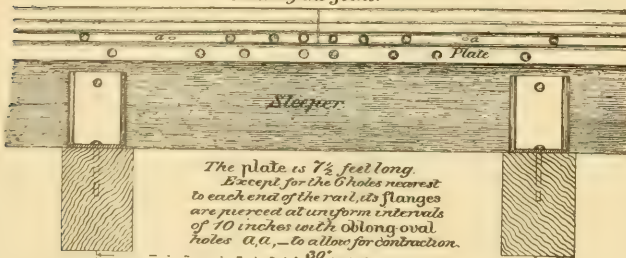 a
a
Plate
Sleeper
The plate is 7½ feet long.
Except for the 6 holes nearest
to each end of the rail, its flanges
are pierced at uniform intervals
of 10 inches with oblong-oval
holes a,a,—to allow for contraction.
30"